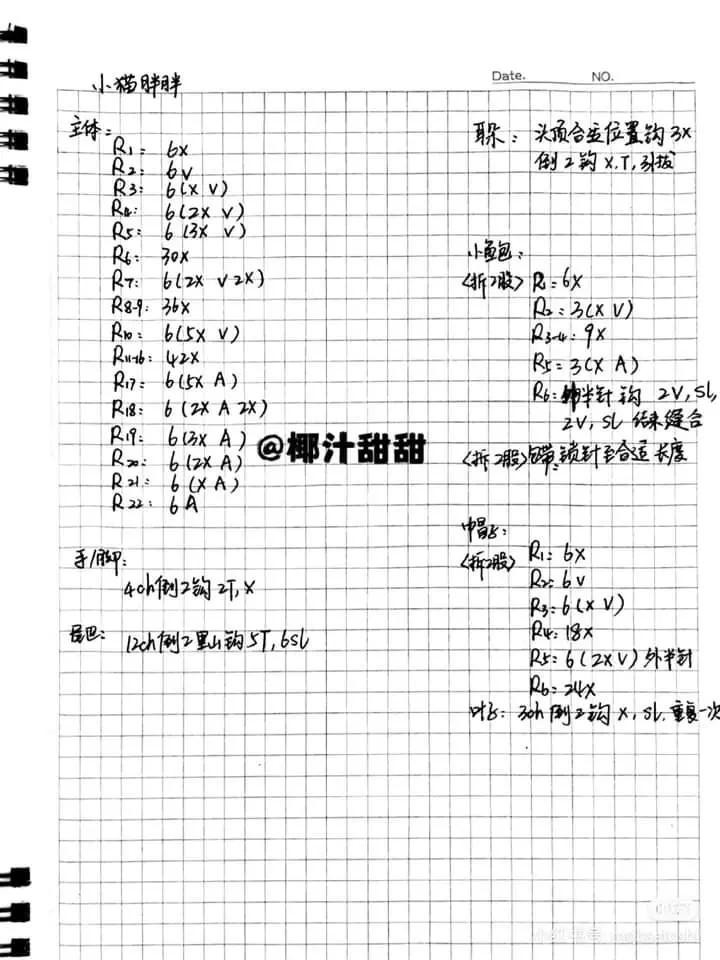 Date. NO.
小猫胖胖
主体:
R1: 6X
R2: 6V
R3: 6(X V)
R4: 6(2X V)
R5: 6(3X V)
R6: 30X
R7: 6(2X V 2X)
R8-9: 36X
R10: 6(5X V)
R11-16: 42X
R17: 6(5X A)
R18: 6(2X A 2X)
R19: 6(3X A)
R20: 6(2X A)
R21: 6(X A)
R22: 6A
手/脚:
4ch倒2钩2T,X
尾巴: 12ch倒2里山钩5T,6SL
耳朵: 头顶合适位置钩3X
倒2钩X,T,引拔
小鱼包:
<拆2股> R1: 6X
R2: 3(X V)
R3-4: 9X
R5: 3(X A)
R6: 半针钩 2V,SL,
2V,SL 结束缝合
<拆2股>包带:锁针至合适长度
帽子:
<拆2股> R1: 6X
R2: 6V
R3: 6(X V)
R4: 18X
R5: 6(2X V)外半针
R6: 24X
叶子: 3ch倒2钩X,SL.重复一次
@椰汁甜甜
小红书号